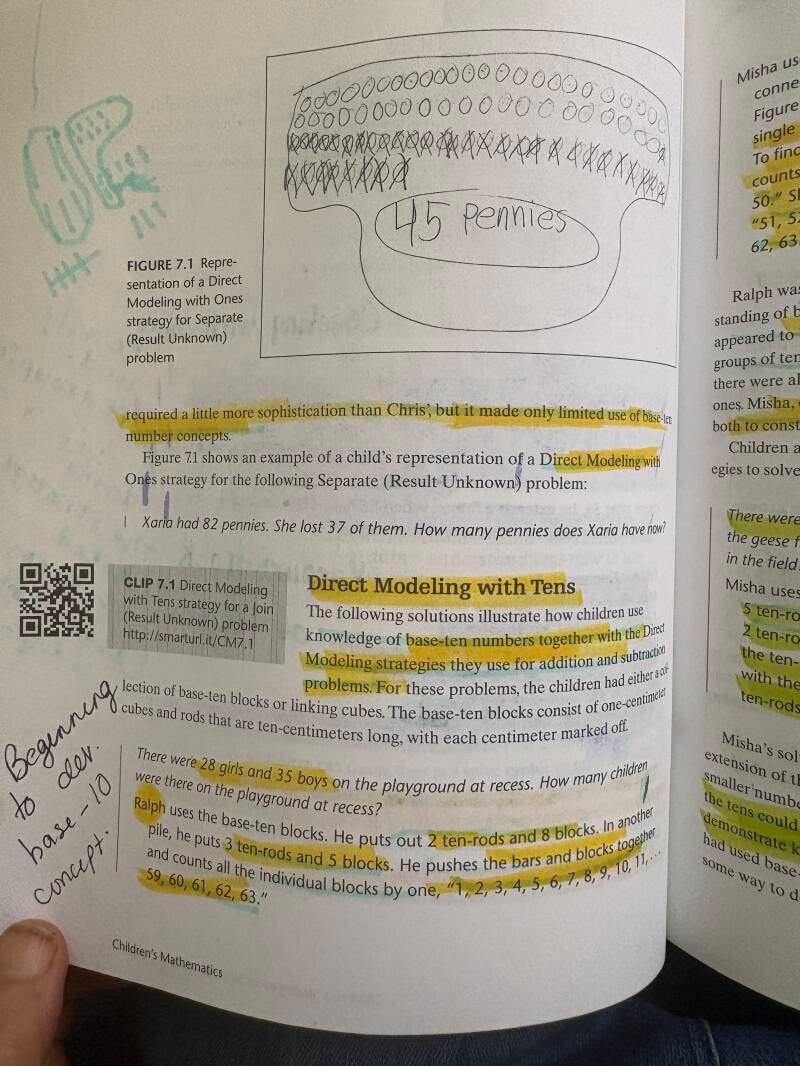 45 pennies
FIGURE 7.1 Repre-
sentation of a Direct
Modeling with Ones
strategy for Separate
(Result Unknown)
problem
required a little more sophistication than Chris', but it made only limited use of base-ten
number concepts.
Figure 7.1 shows an example of a child's representation of a Direct Modeling with
Ones strategy for the following Separate (Result Unknown) problem:
Xaria had 82 pennies. She lost 37 of them. How many pennies does Xaria have now?
CLIP 7.1 Direct Modeling
with Tens strategy for a Join
(Result Unknown) problem
http://smarturl.it/CM7.1
Direct Modeling with Tens
The following solutions illustrate how children use
knowledge of base-ten numbers together with the Direct
Modeling strategies they use for addition and subtraction
problems. For these problems, the children had either a col-
lection of base-ten blocks or linking cubes. The base-ten blocks consist of one-centimeter
cubes and rods that are ten-centimeters long, with each centimeter marked off.
Beginning
to dev.
base-10
concept.
There were 28 girls and 35 boys on the playground at recess. How many children
were there on the playground at recess?
Ralph uses the base-ten blocks. He puts out 2 ten-rods and 8 blocks. In another
pile, he puts 3 ten-rods and 5 blocks. He pushes the bars and blocks together
and counts all the individual blocks by one, "1, 2, 3, 4, 5, 6, 7, 8, 9, 10, 11, . . .
59, 60, 61, 62, 63."
Children's Mathematics
Misha us
conne
Figure
single
To find
counts
50." S
"51, 52
62, 63
Ralph was
standing of b
appeared to
groups of ten
there were al
ones. Misha,
both to const
Children a
egies to solve
There were
the geese f
in the field
Misha uses
5 ten-ro
2 ten-ro
the ten-
with the
ten-rods
Misha's sol
extension of th
smaller numbe
the tens could
demonstrate k
had used base-
some way to d